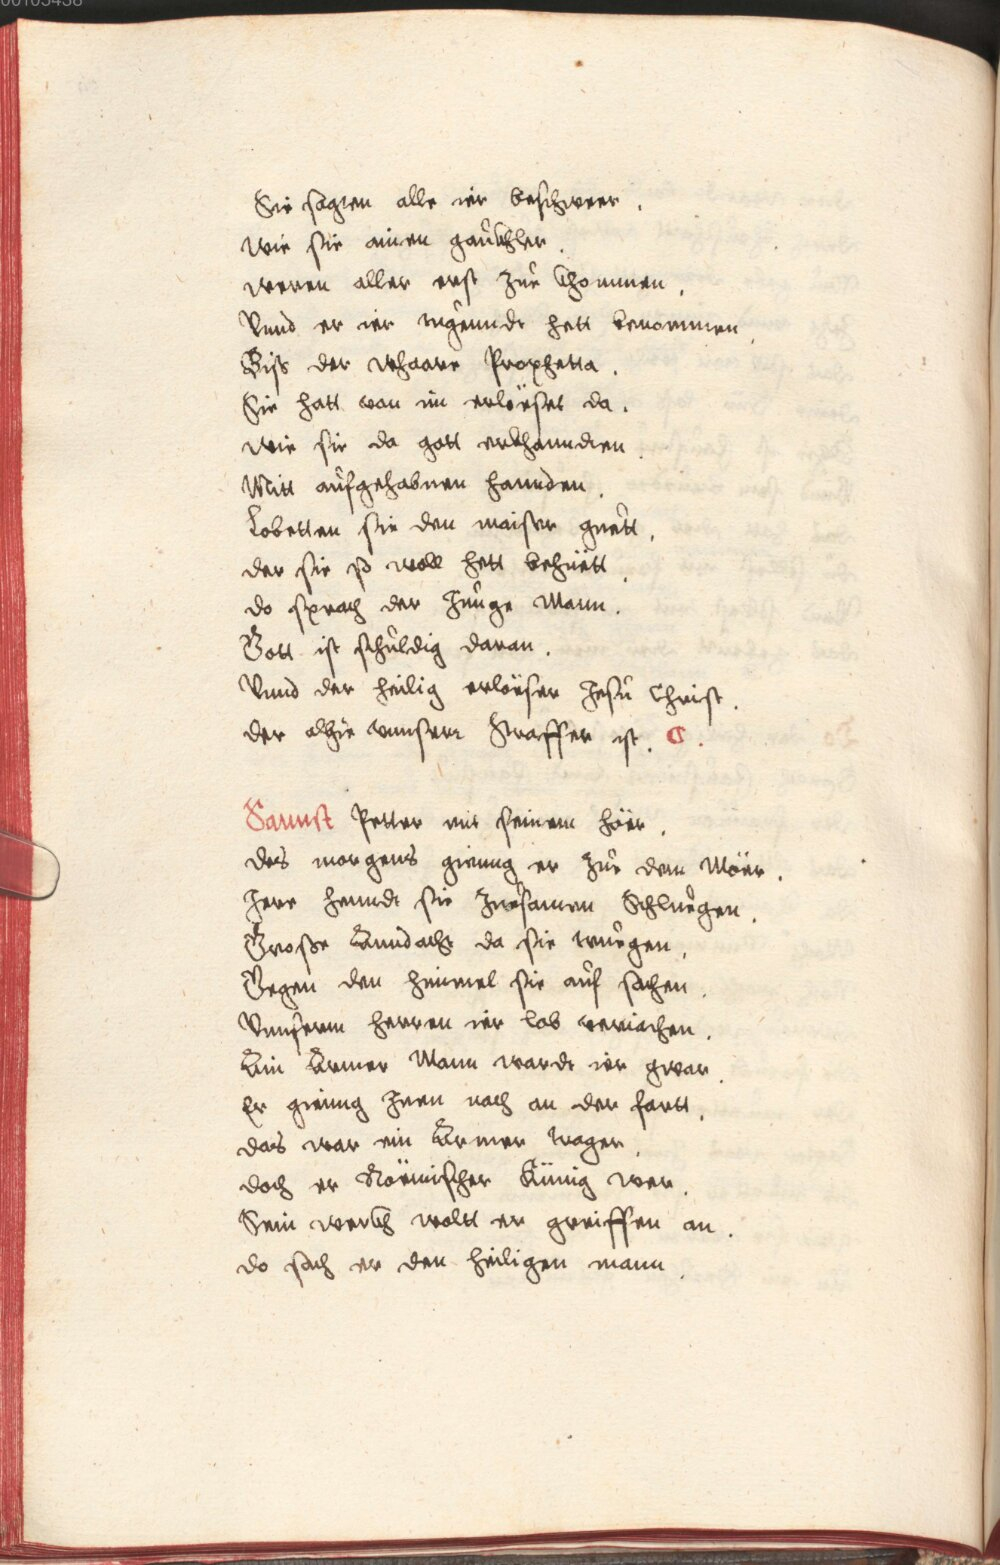 00105438
Sie sagten alle ier beschwer .
wie sie ainen gaückhler .
weren aller erst zue khommen .
Vnnd er ier mgeundt hett benommen .
Biß der whaare Prophetta .
Sie hatt von im erlöeset da .
wie sie da gott erkhanndten .
Mitt aufgehabnen hannden .
Lobetten sie den maister guett .
der sie so woll hett behüett .
do sprach der Junge Mann .
Gott ist schuldig daran .
Vnnd der heilig erlöeser Jesu Christ .
der alhie vnnserr Straffer ist .
Sannst Petter mit seinem höer .
des morgens gieng er zue dem Möer .
Jere henndt sie zuesamen Schluegen .
Große Anndacht da sie truegen .
Gegen den himmel sie auf sachen .
Vnnserm herren ier lob veriachen .
Ain Armer Mann wardt ier gwar .
Er gienng Inen nach an der fartt .
das war ein Armer trager .
doch er Röemischer Künig wer .
Sein werckh woltt er greiffen an .
do sach er den heiligen mann .